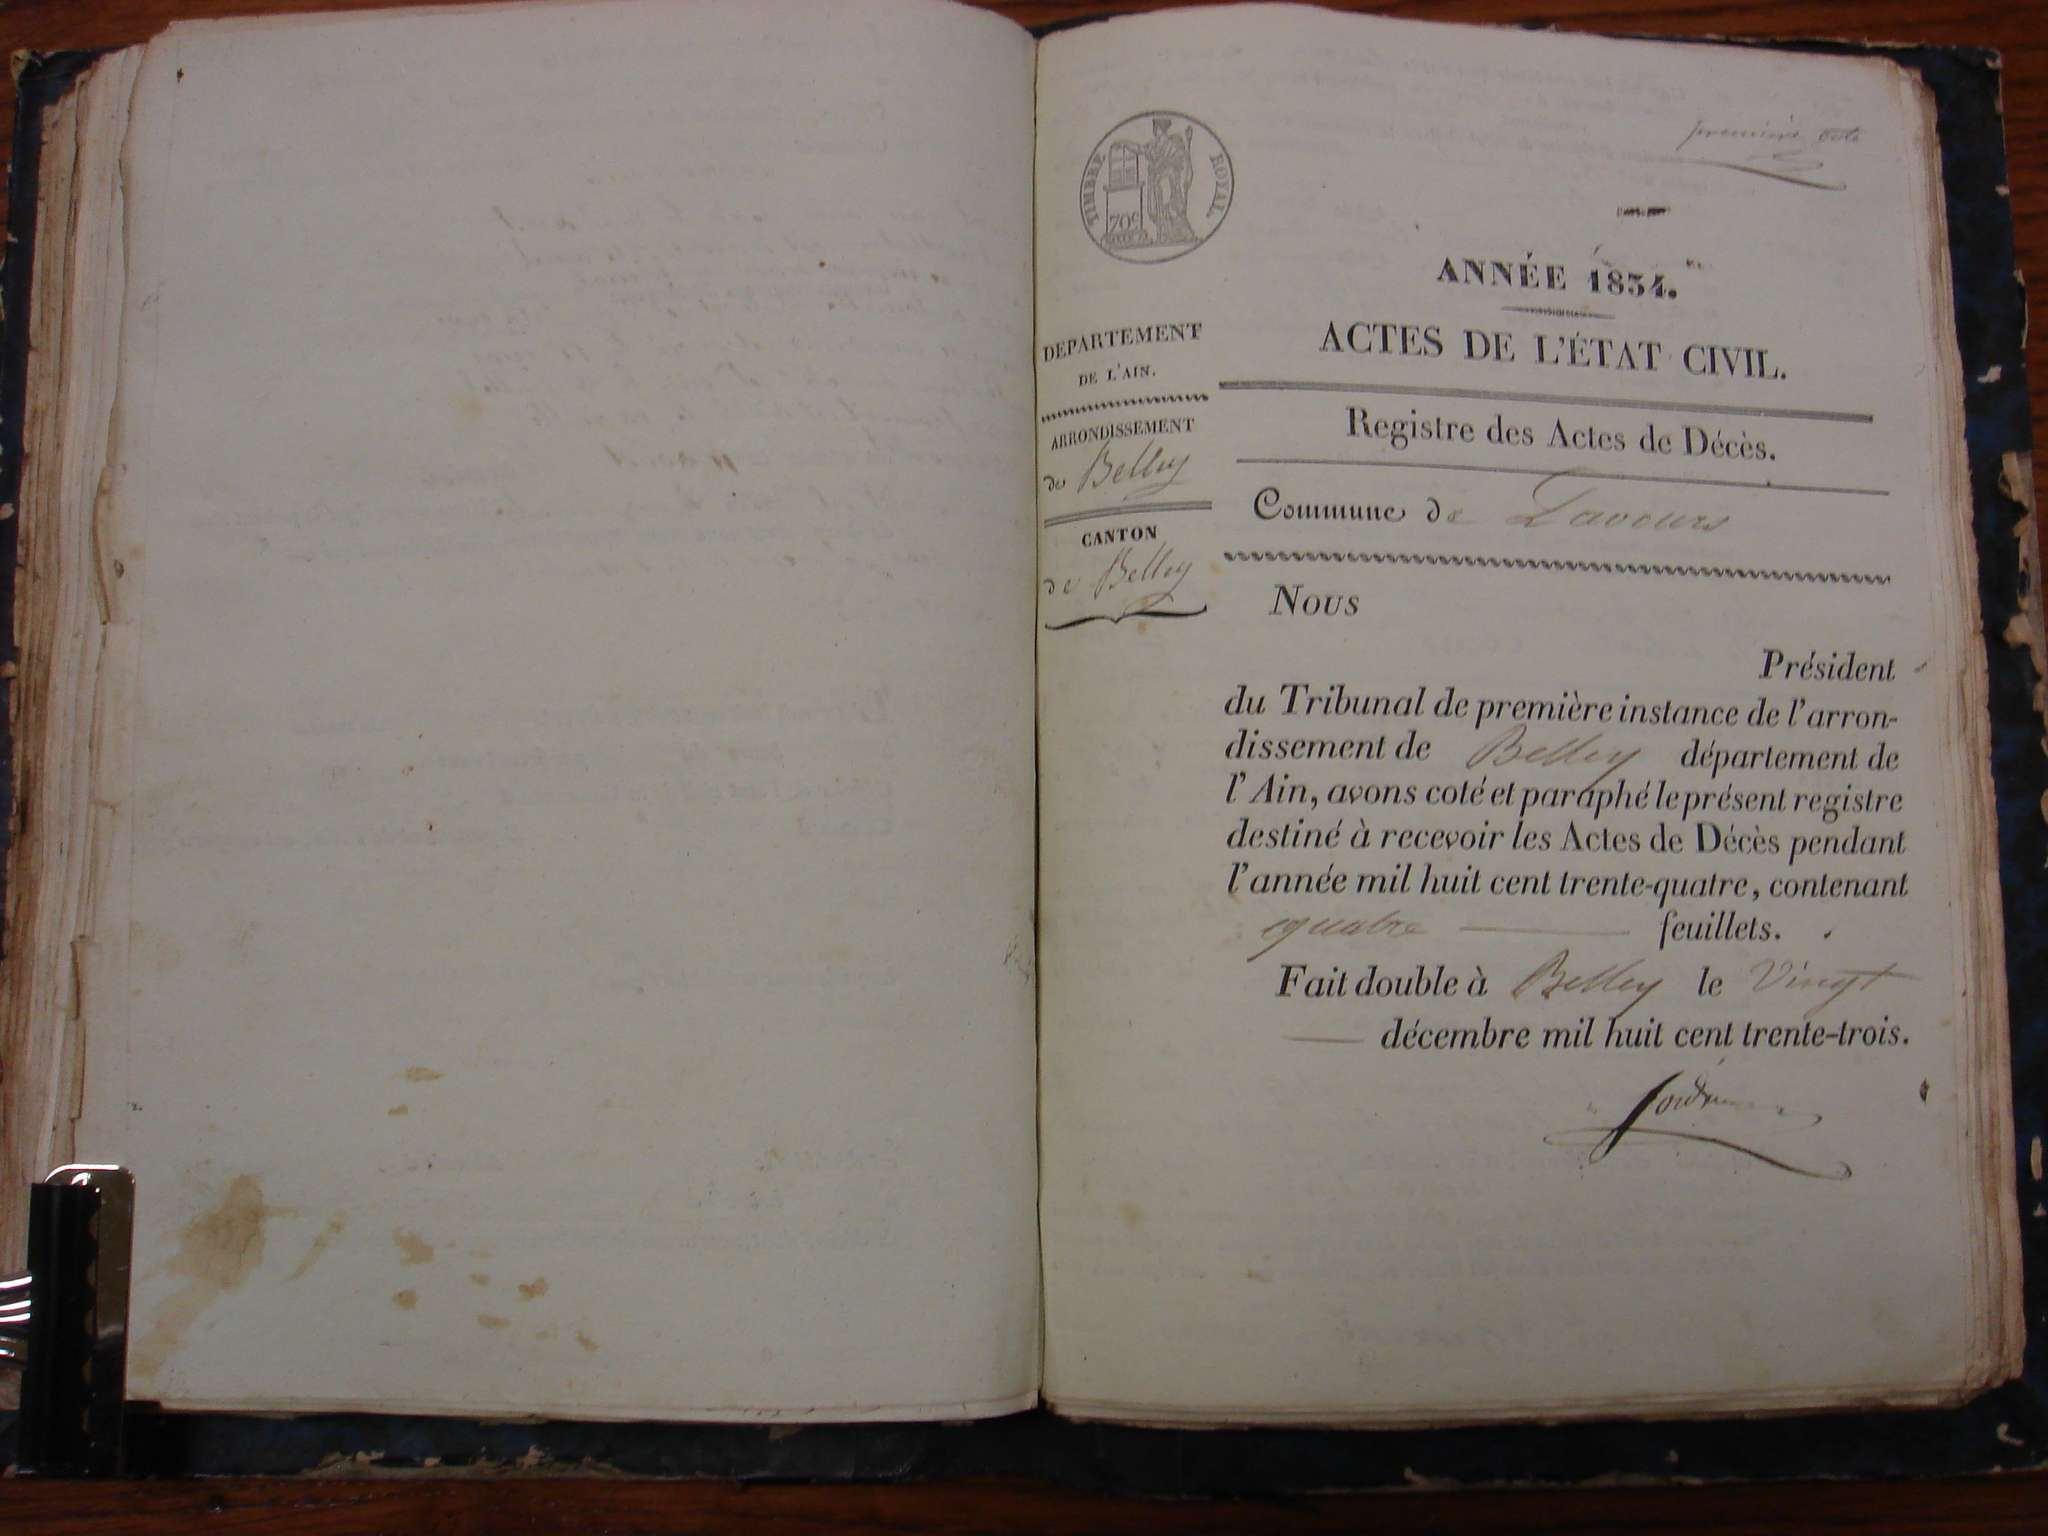 première
TIMBRE ROYAL.
70c
ANNÉE 1834.
ACTES DE L'ÉTAT CIVIL.
Registre des Actes de Décès.
Commune de Lavours
DEPARTEMENT
DE L'AIN.
ARRONDISSEMENT
de Belley
CANTON
de Belley
Nous
Président
du Tribunal de première instance de l'arron-
dissement de Belley département de
l'Ain, avons coté et paraphé le présent registre
destiné à recevoir les Actes de Décès pendant
l'année mil huit cent trente-quatre, contenant
quatre feuillets.
Fait double à Belley le Vingt
décembre mil huit cent trente-trois.